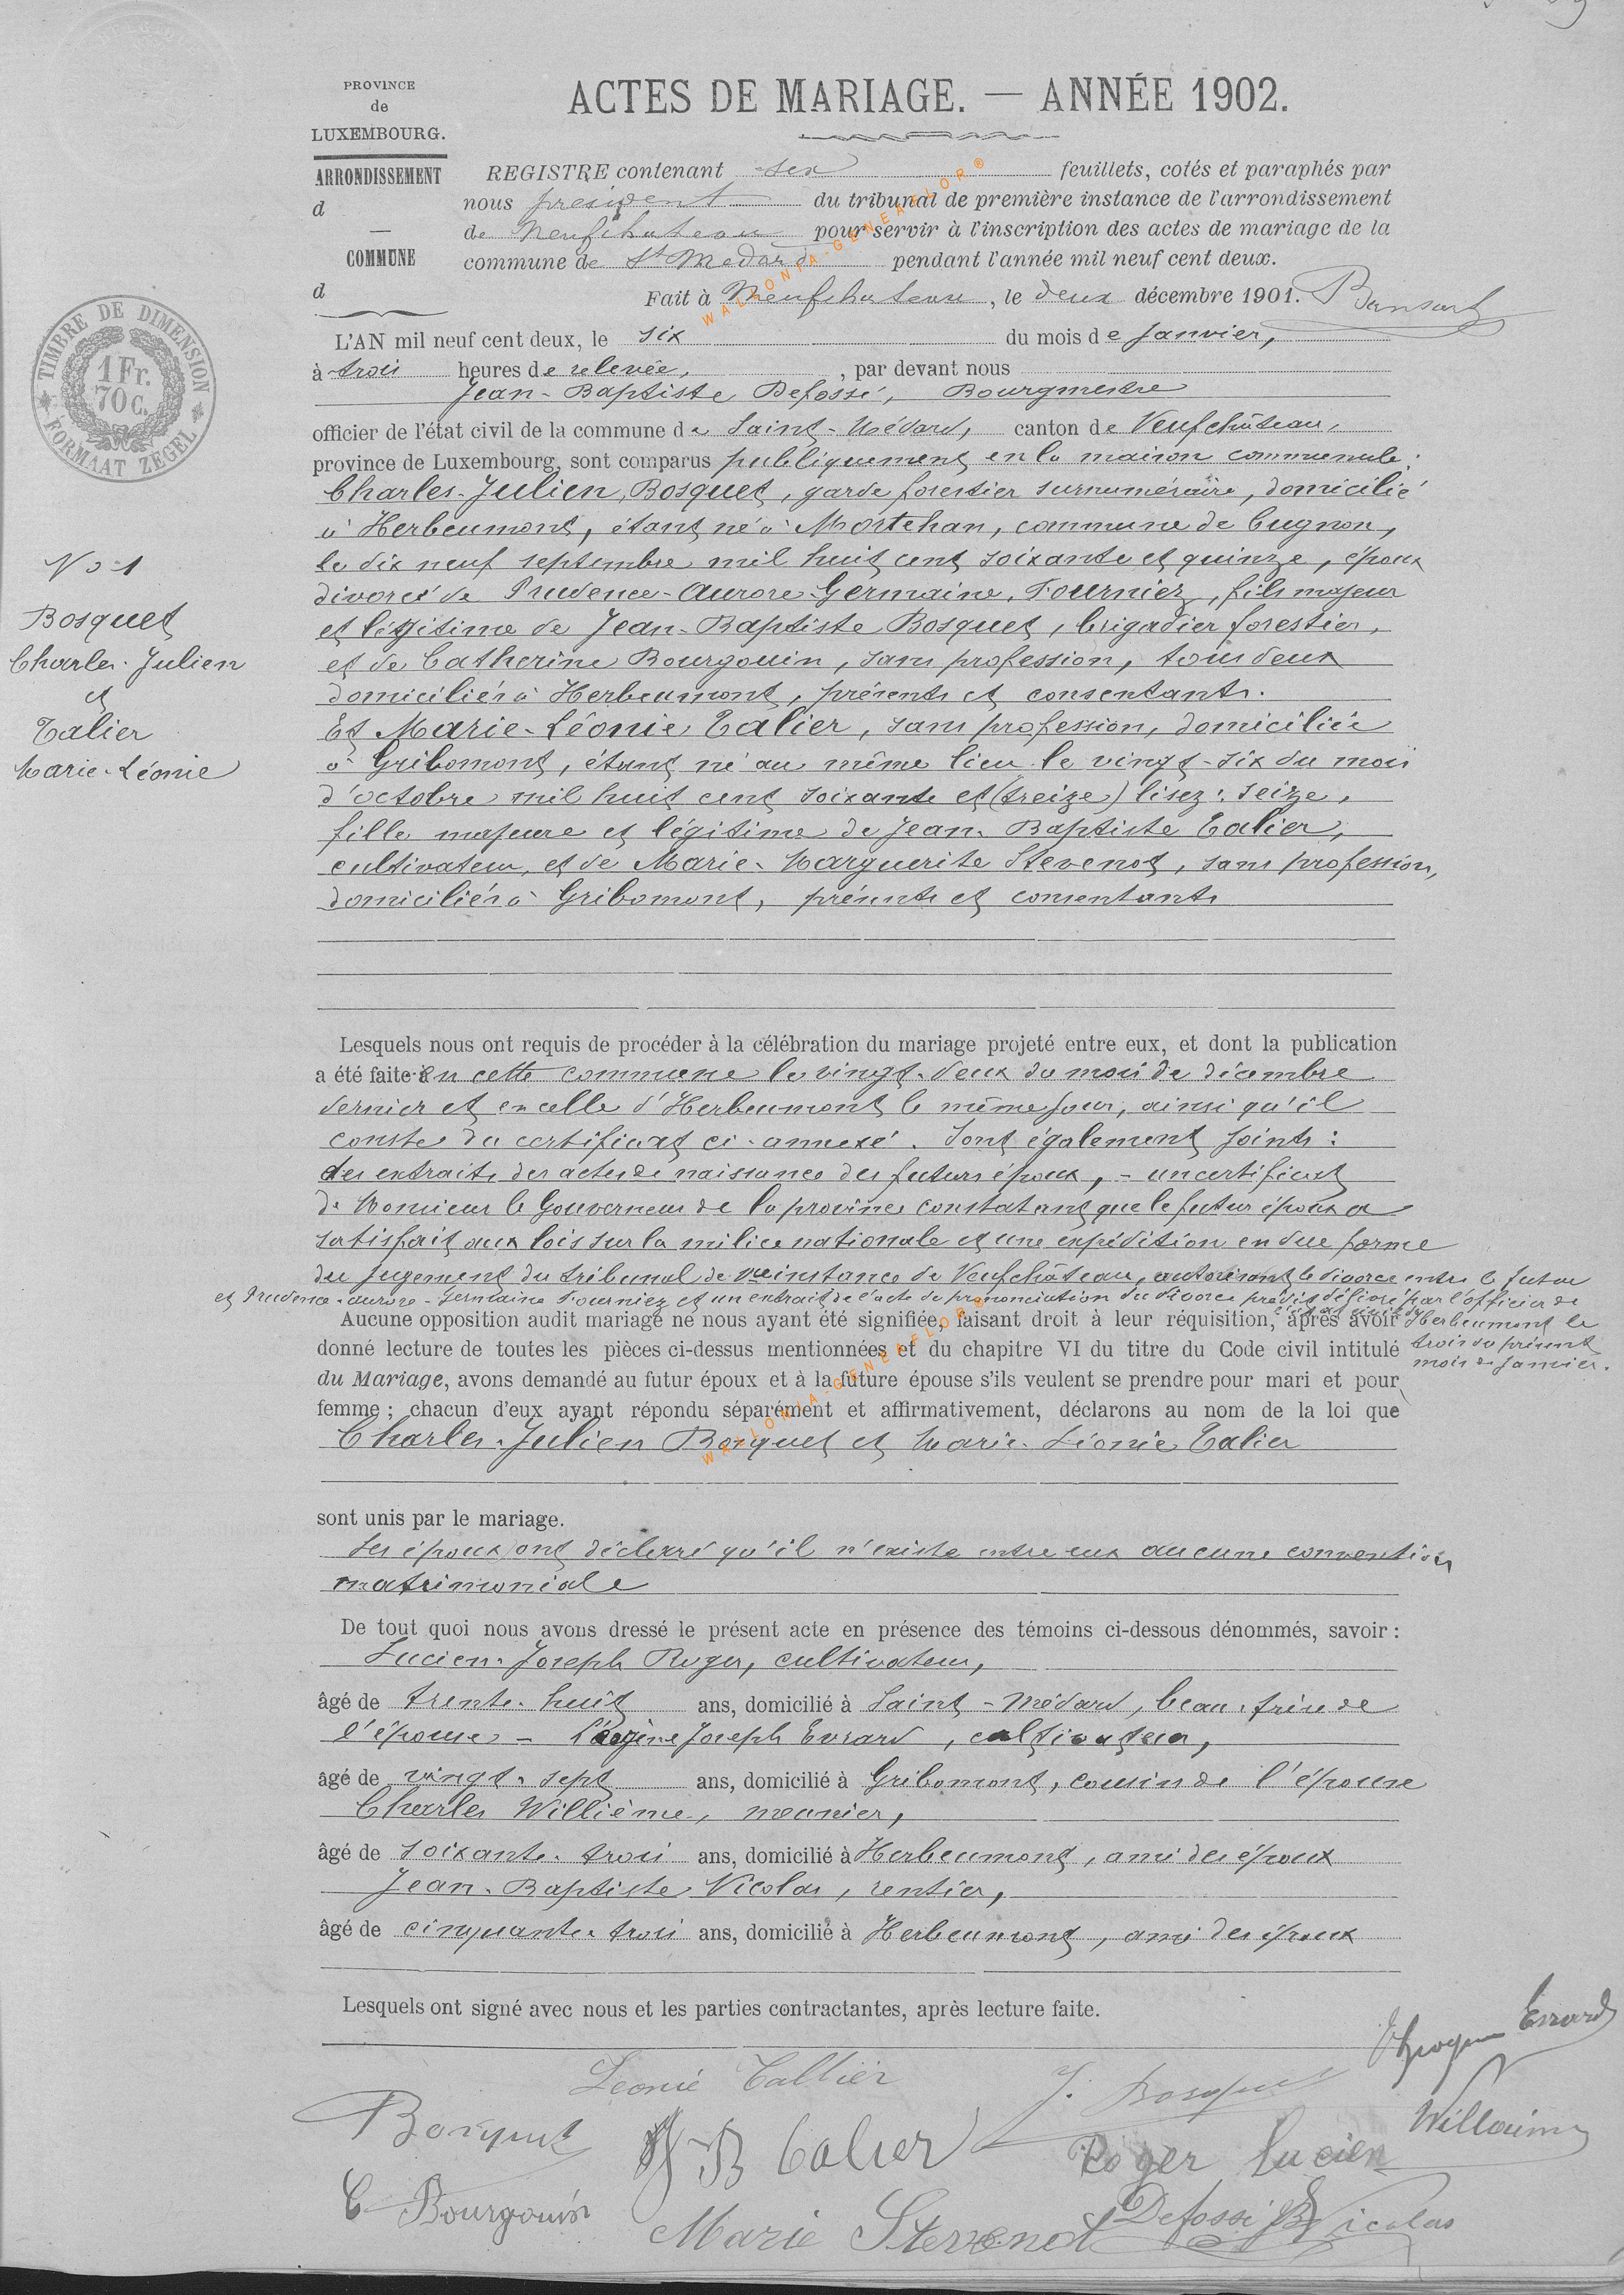 PROVINCE
de
LUXEMBOURG.
ARRONDISSEMENT
d
COMMUNE
d
ACTES DE MARIAGE. — ANNÉE 1902.
REGISTRE contenant six feuillets, cotés et paraphés par
nous président du tribunal de première instance de l'arrondissement
de Neufchateau pour servir à l'inscription des actes de mariage de la
commune de St Medard pendant l'année mil neuf cent deux.
Fait à Neufchateau, le deux décembre 1901.
TIMBRE DE DIMENSION
1 Fr.
70 C.
FORMAAT ZEGEL
L'AN mil neuf cent deux, le six du mois de Janvier,
à trois heures de relevée, par devant nous
Jean-Baptiste Defossé, Bourgmestre
officier de l'état civil de la commune de Saint-Médard, canton de Neufchâteau,
province de Luxembourg, sont comparus publiquement en la maison communale:
Charles-Julien Bosquet, garde forestier surnuméraire, domicilié
à Herbeumont, étant né à Mortehan, commune de Cugnon,
le dix neuf septembre mil huit cent soixante et quinze, époux
divorcé de Prudence-Aurore-Germaine Fourniez, fils majeur
et légitime de Jean-Baptiste Bosquet, brigadier forestier,
et de Catherine Bourgouin, sans profession, tous deux
domiciliés à Herbeumont, présents et consentants.
Et Marie-Léonie Talier, sans profession, domiciliée
à Gribomont, étant né au même lieu le vingt-six du mois
d'octobre mil huit cent soixante et (treize) lisez: seize,
fille majeure et légitime de Jean-Baptiste Talier,
cultivateur, et de Marie-Marguerite Stevenot, sans profession,
domiciliés à Gribomont, présents et consentants
No 1
Bosquet
Charles-Julien
et
Talier
Marie-Léonie
Lesquels nous ont requis de procéder à la célébration du mariage projeté entre eux, et dont la publication
a été faite en cette commune le vingt-deux du mois de décembre
dernier et en celle d'Herbeumont le même jour, ainsi qu'il
conste du certificat ci-annexé. Sont également joints:
des extraits des actes de naissance des futurs époux, - un certificat
de Monsieur le Gouverneur de la province constatant que le futur époux a
satisfait aux lois sur la milice nationale et une expédition en due forme
du jugement du tribunal de 1re instance de Neufchâteau, autorisant le divorce entre le futur
et Prudence-Aurore-Germaine Fourniez et un extrait de l'acte de prononciation du divorce prédit délivré par l'officier de
l'état civil de Herbeumont le
trois du présent
mois de janvier.
Aucune opposition audit mariage ne nous ayant été signifiée, faisant droit à leur réquisition, après avoir
donné lecture de toutes les pièces ci-dessus mentionnées et du chapitre VI du titre du Code civil intitulé
du Mariage, avons demandé au futur époux et à la future épouse s'ils veulent se prendre pour mari et pour
femme ; chacun d'eux ayant répondu séparément et affirmativement, déclarons au nom de la loi que
Charles-Julien Bosquet et Marie-Léonie Talier
sont unis par le mariage.
Les époux ont déclaré qu'il n'existe entre eux aucune convention
matrimoniale
De tout quoi nous avons dressé le présent acte en présence des témoins ci-dessous dénommés, savoir :
Lucien-Joseph Roger, cultivateur,
âgé de trente-huit ans, domicilié à Saint-Médard, beau-frère de
l'épouse - Joseph Evrard, cultivateur,
âgé de vingt-sept ans, domicilié à Gribomont, cousin de l'épouse
Charles Willième, meunier,
âgé de soixante-trois ans, domicilié à Herbeumont, ami des époux
Jean-Baptiste Nicolas, rentier,
âgé de cinquante-trois ans, domicilié à Herbeumont, ami des époux
Lesquels ont signé avec nous et les parties contractantes, après lecture faite.
Evrard
Leonie Tallier
J. Bosquet
Bosquet
J-B Talier
Roger Lucien
C Bourgouin
Marie Stevenot
Defossé
Nicolas
WALLONIA-GENEAFLOR®
WALLONIA-GENEAFLOR®